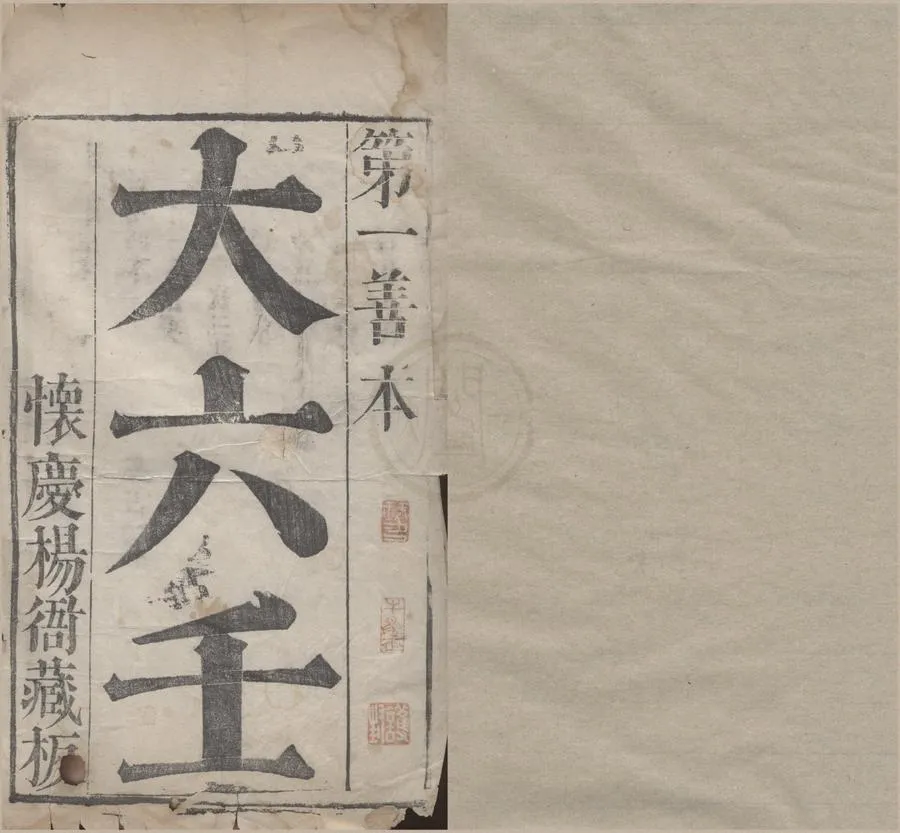 第一善本
大六壬
懷慶楊衙藏板